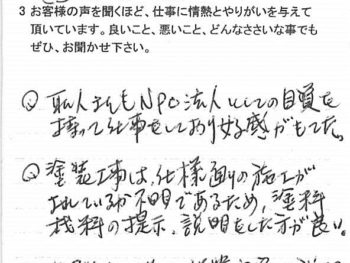 3 お客様の声を聞くほど、仕事に情熱とやりがいを与えて
頂いています。良いこと、悪いこと、どんなささいな事でも
ぜひ、お聞かせ下さい。
職人さんもNPO法人としての自負を
持って仕事をしており好感がもてた。
塗装工事は、仕様通りの施工が
されているか不明であるため、塗料
材料の提示、説明をした方が良い。